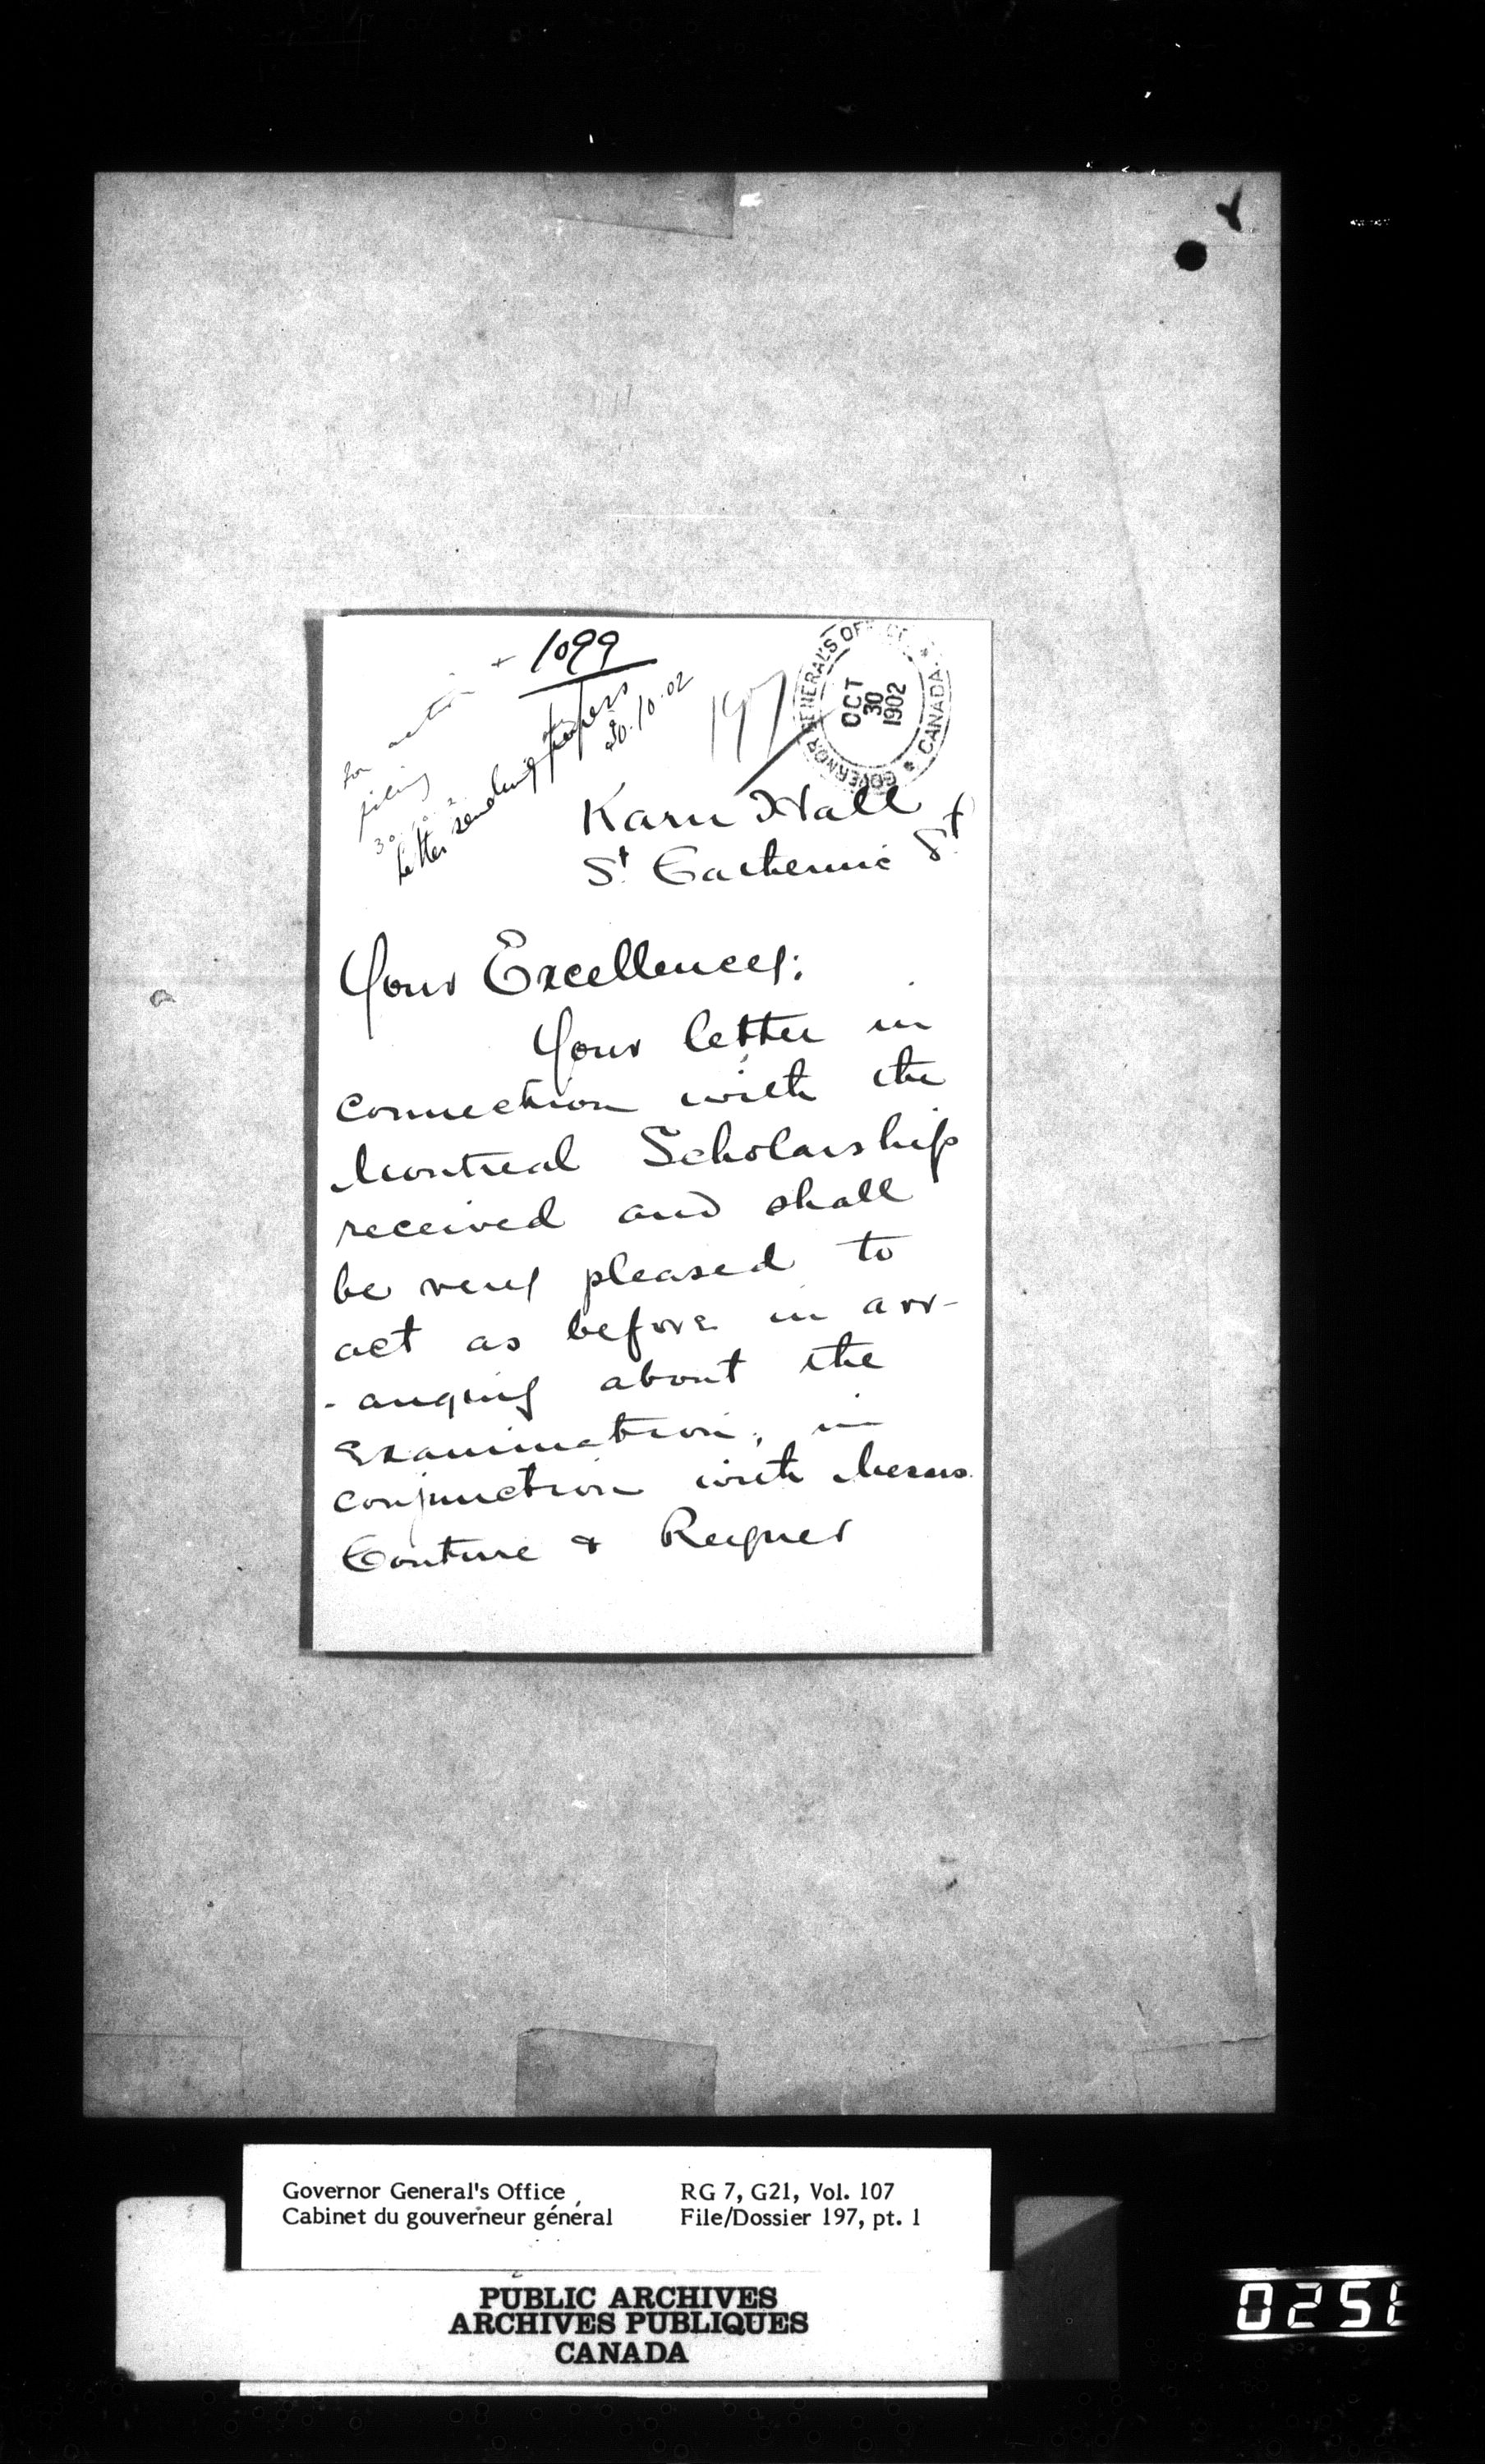 1099
for action
filing
30.10.2
Letter sending papers
30.10.02
197
GOVERNOR GENERAL'S OFFICE * CANADA *
OCT
30
1902
Karn Hall
St Catherine St
Your Excellency:
Your letter in
connection with the
Montreal Scholarship
received and shall
be very pleased to
act as before in arr-
- anging about the
Examination, in
conjunction with Messrs.
Couture &
Governor General's Office
Cabinet du gouverneur général
RG 7, G21, Vol. 107
File/Dossier 197, pt. 1
PUBLIC ARCHIVES
ARCHIVES PUBLIQUES
CANADA
0251